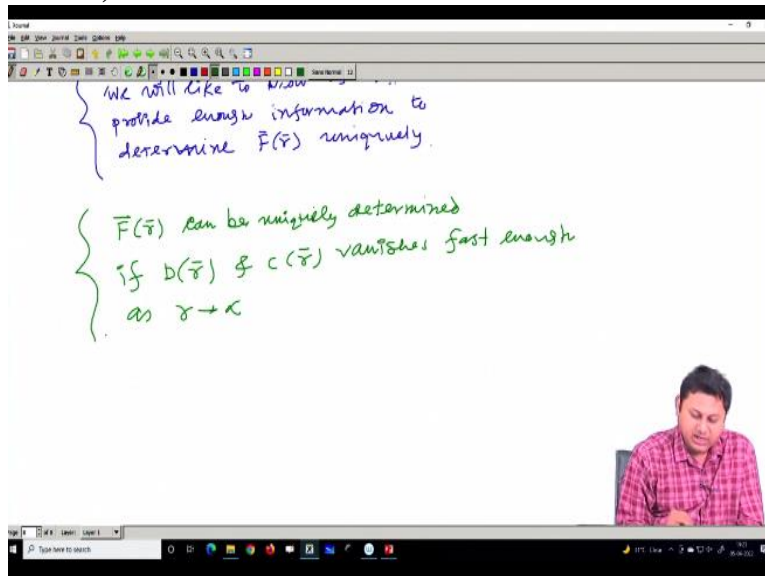 Journal
File Edit View Journal Tools Options Help
Sans Normal 12
we will like to know
provide enough information to
determine F̄(r̄) uniquely.
F̄(r̄) can be uniquely determined
if D(r̄) & C(r̄) vanishes fast enough
as r → ∝
Layer: Layer 1
Type here to search